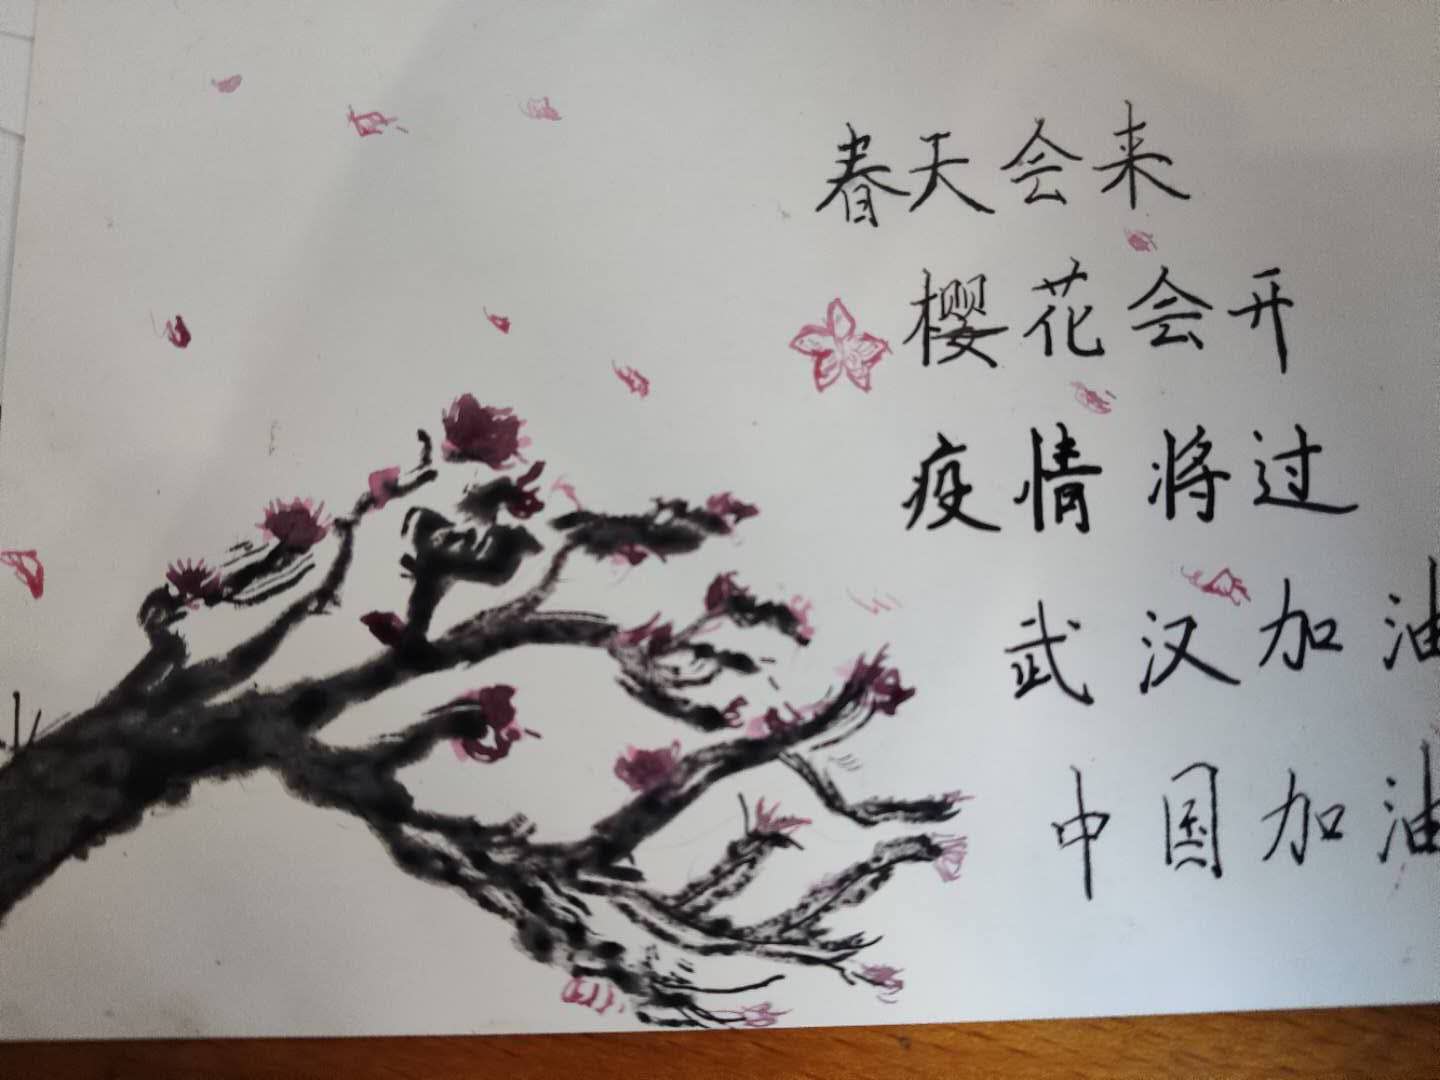 春天会来
樱花会开
疫情将过
武汉加油
中国加油